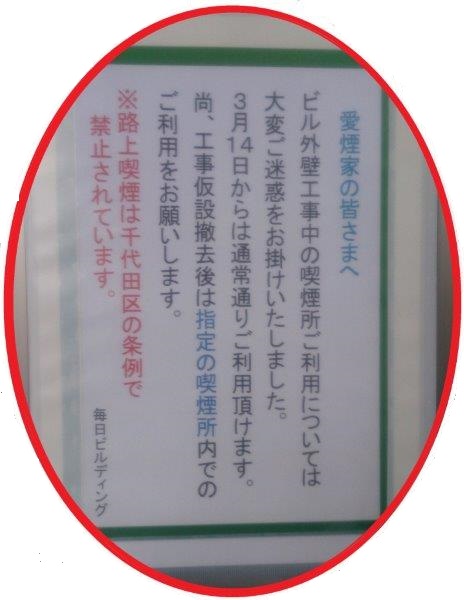 愛煙家の皆さまへ
ビル外壁工事中の喫煙所ご利用については
大変ご迷惑をお掛けいたしました。
3月14日からは通常通りご利用頂けます。
尚、工事仮設撤去後は指定の喫煙所内での
ご利用をお願いします。
※路上喫煙は千代田区の条例で
禁止されています。
毎日ビルディング